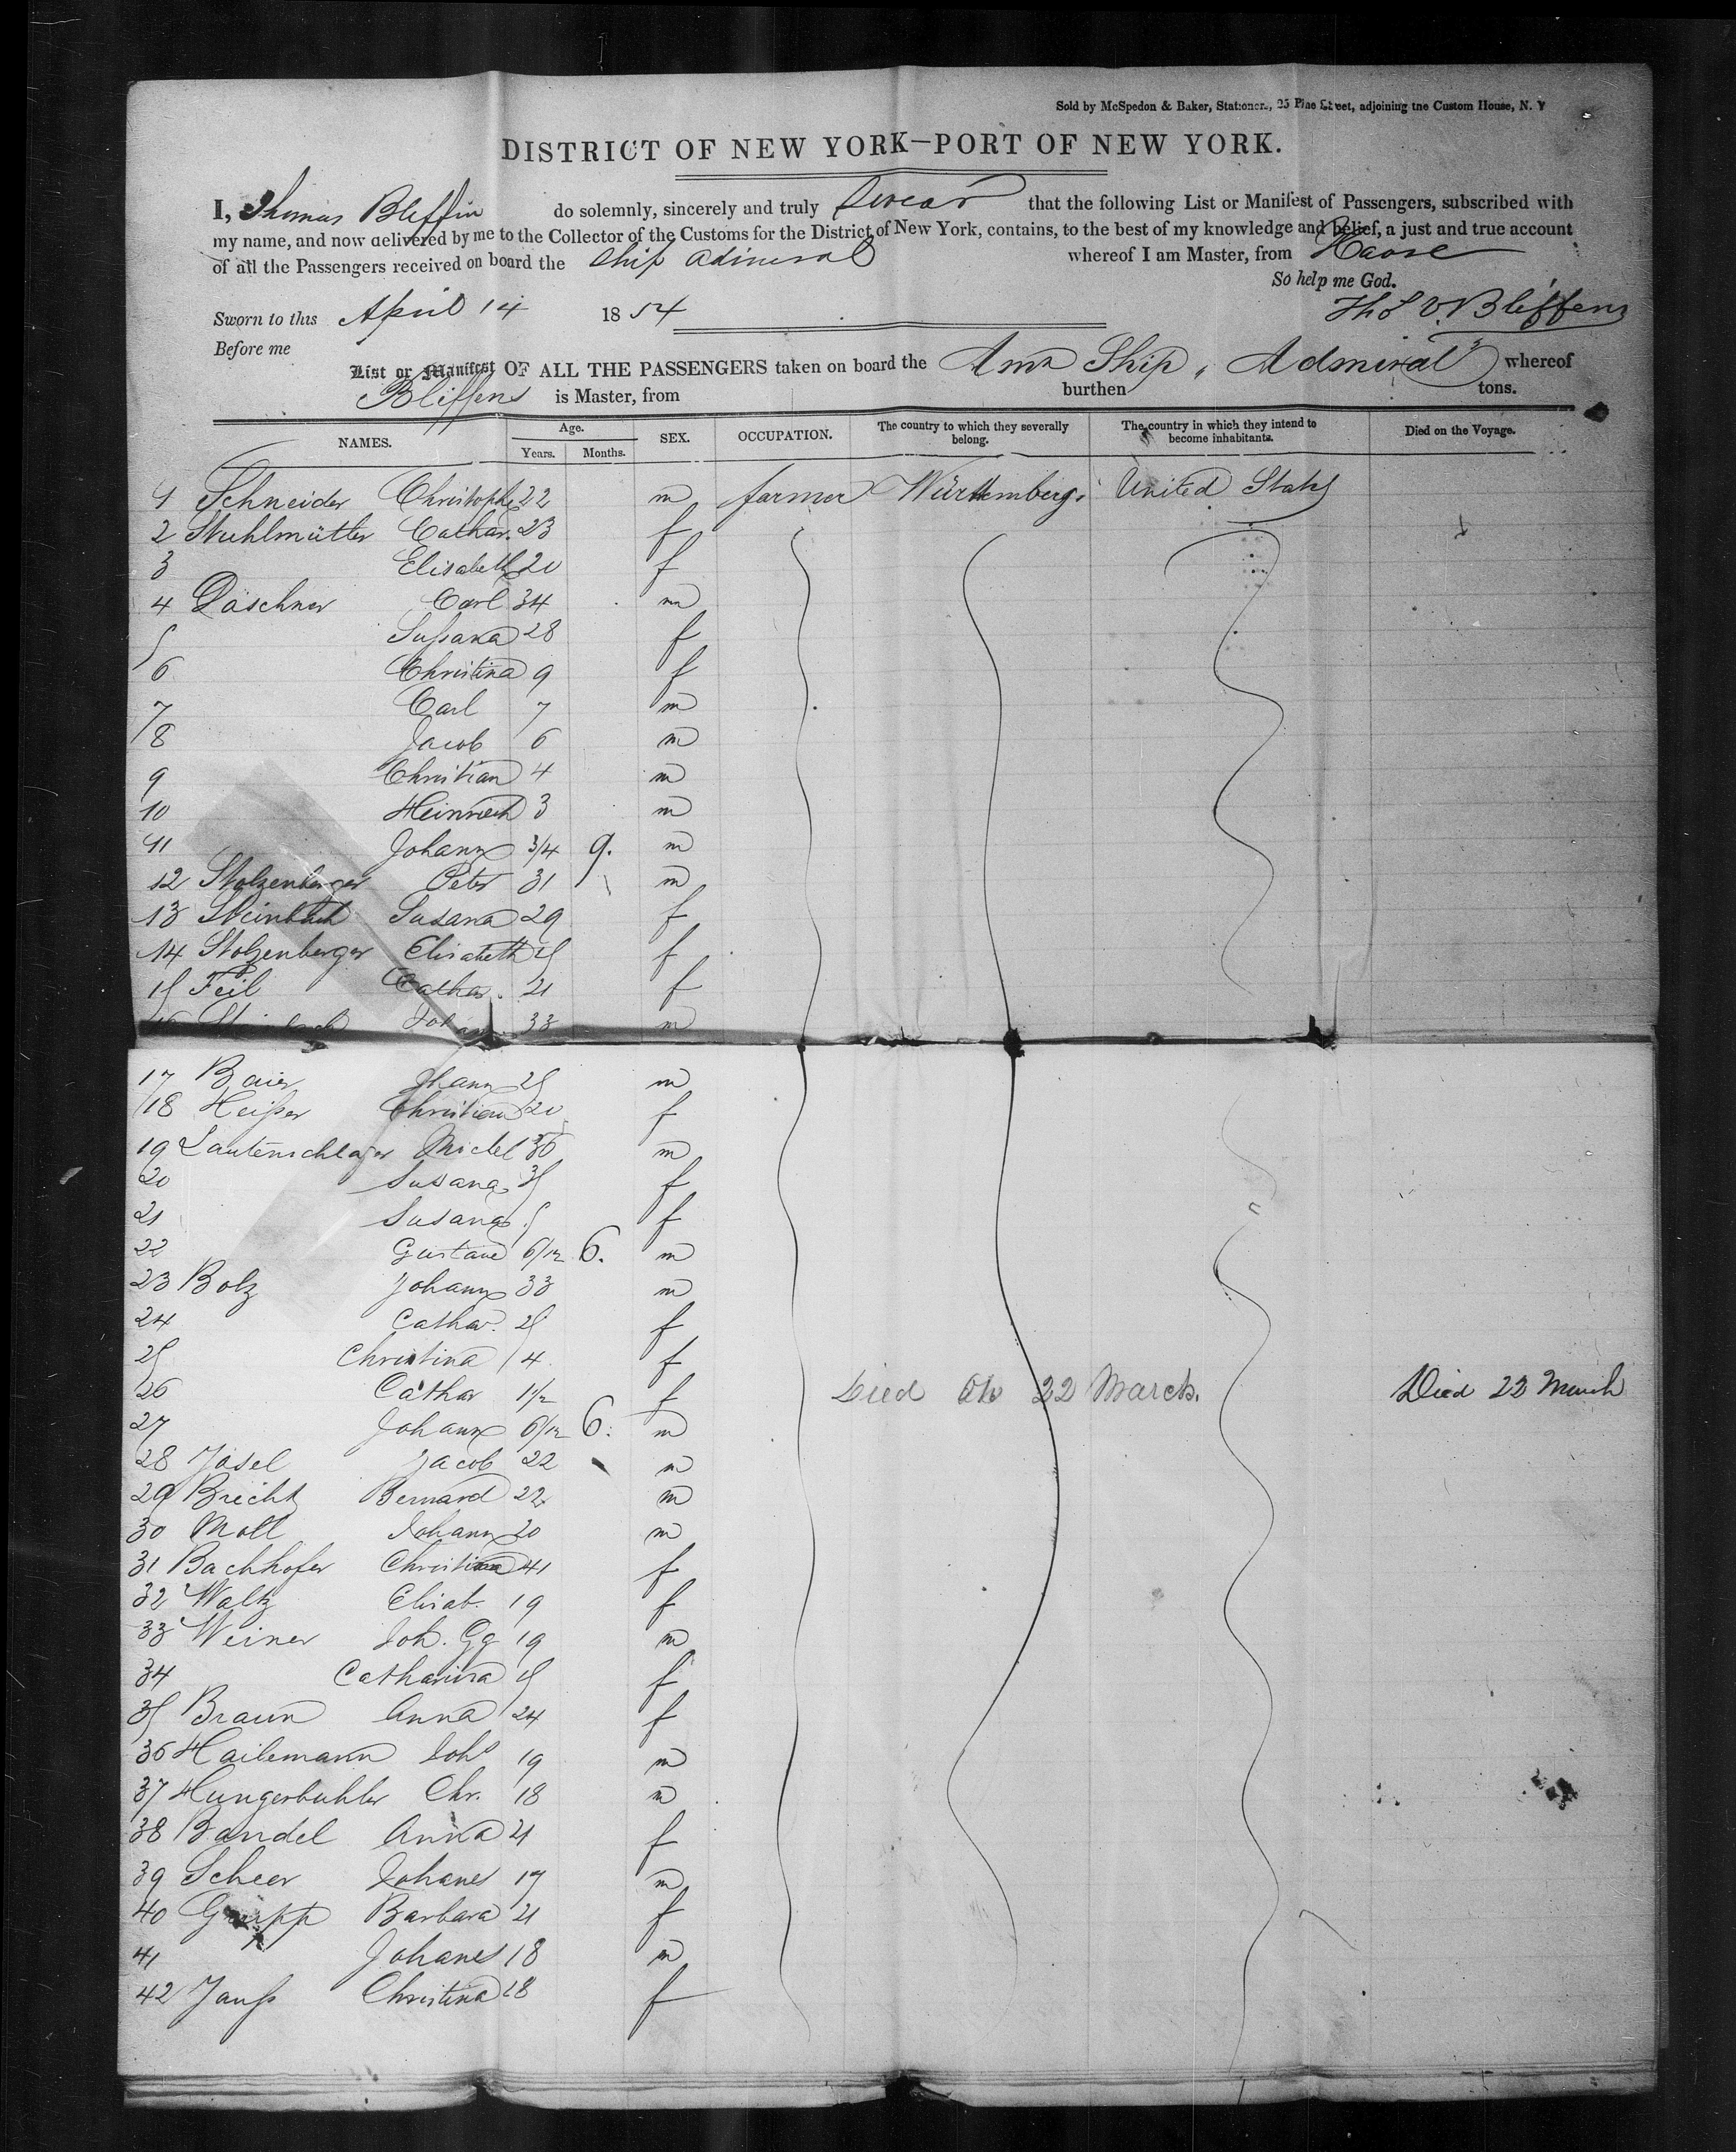 Sold by McSpedon & Baker, Stationers, 25 Pine Street, adjoining the Custom House, N. Y
DISTRICT OF NEW YORK—PORT OF NEW YORK.
I, Thomas Bleffin do solemnly, sincerely and truly swear that the following List or Manifest of Passengers, subscribed with
my name, and now delivered by me to the Collector of the Customs for the District of New York, contains, to the best of my knowledge and belief, a just and true account
of all the Passengers received on board the Ship Admiral whereof I am Master, from Havre
So help me God.
Sworn to this April 14 1854
Bliffens
Before me
List or Manifest OF ALL THE PASSENGERS taken on board the Amn Ship "Admiral" whereof
Bliffens is Master, from burthen tons.
NAMES. Age. Years. Months. SEX. OCCUPATION. The country to which they severally belong. The country in which they intend to become inhabitants. Died on the Voyage.
1 Schneider Christoph 22 m farmer Württemberg. United States
2 Stuhlmütter Cathar. 23 f
3 Elisabeth 20 f
4 Däschner Carl 34 m
5 Sußana 28 f
6 Christina 9 f
7 Carl 7 m
8 Jacob 6 m
9 Christian 4 m
10 Heinrich 3 m
11 Johann 3/4 9. m
12 Stolzenberger Peter 31 m
13 Steinbach Susana 29 f
14 Stolzenberger Elisabeth 25 f
15 Feil Cathar. 21 f
16 33 m
17 Baier Jhann 25 m
18 Heißer Christian 20 f
19 Lautenschlager Michel 36 m
20 Susana 35 f
21 Susana 5 f
22 Gustave 6/12 6. m
23 Bolz Johann 33 m
24 Cathar. 25 f
25 Christina 4 f
26 Cathar 1 1/2 f Died 22 March. Died 22 March
27 Johann 6/12 6. m
28 Josel Jacob 22 m
29 Brecht Bernard 22 m
30 Moll Johann 20 m
31 Bachhofer Christina 41 f
32 Waltz Elisab. 19 f
33 Weiner Joh. Gg 19 m
34 Catharina 15 f
35 Braun Anna 24 f
36 Hailemann Johs 19 m
37 Hungerbuhler Chr. 18 m
38 Bandel Anna 21 f
39 Scheer Johanes 17 m
40 Graupp Barbara 21 f
41 Johanes 18 m
42 Jauß Christina 18 f